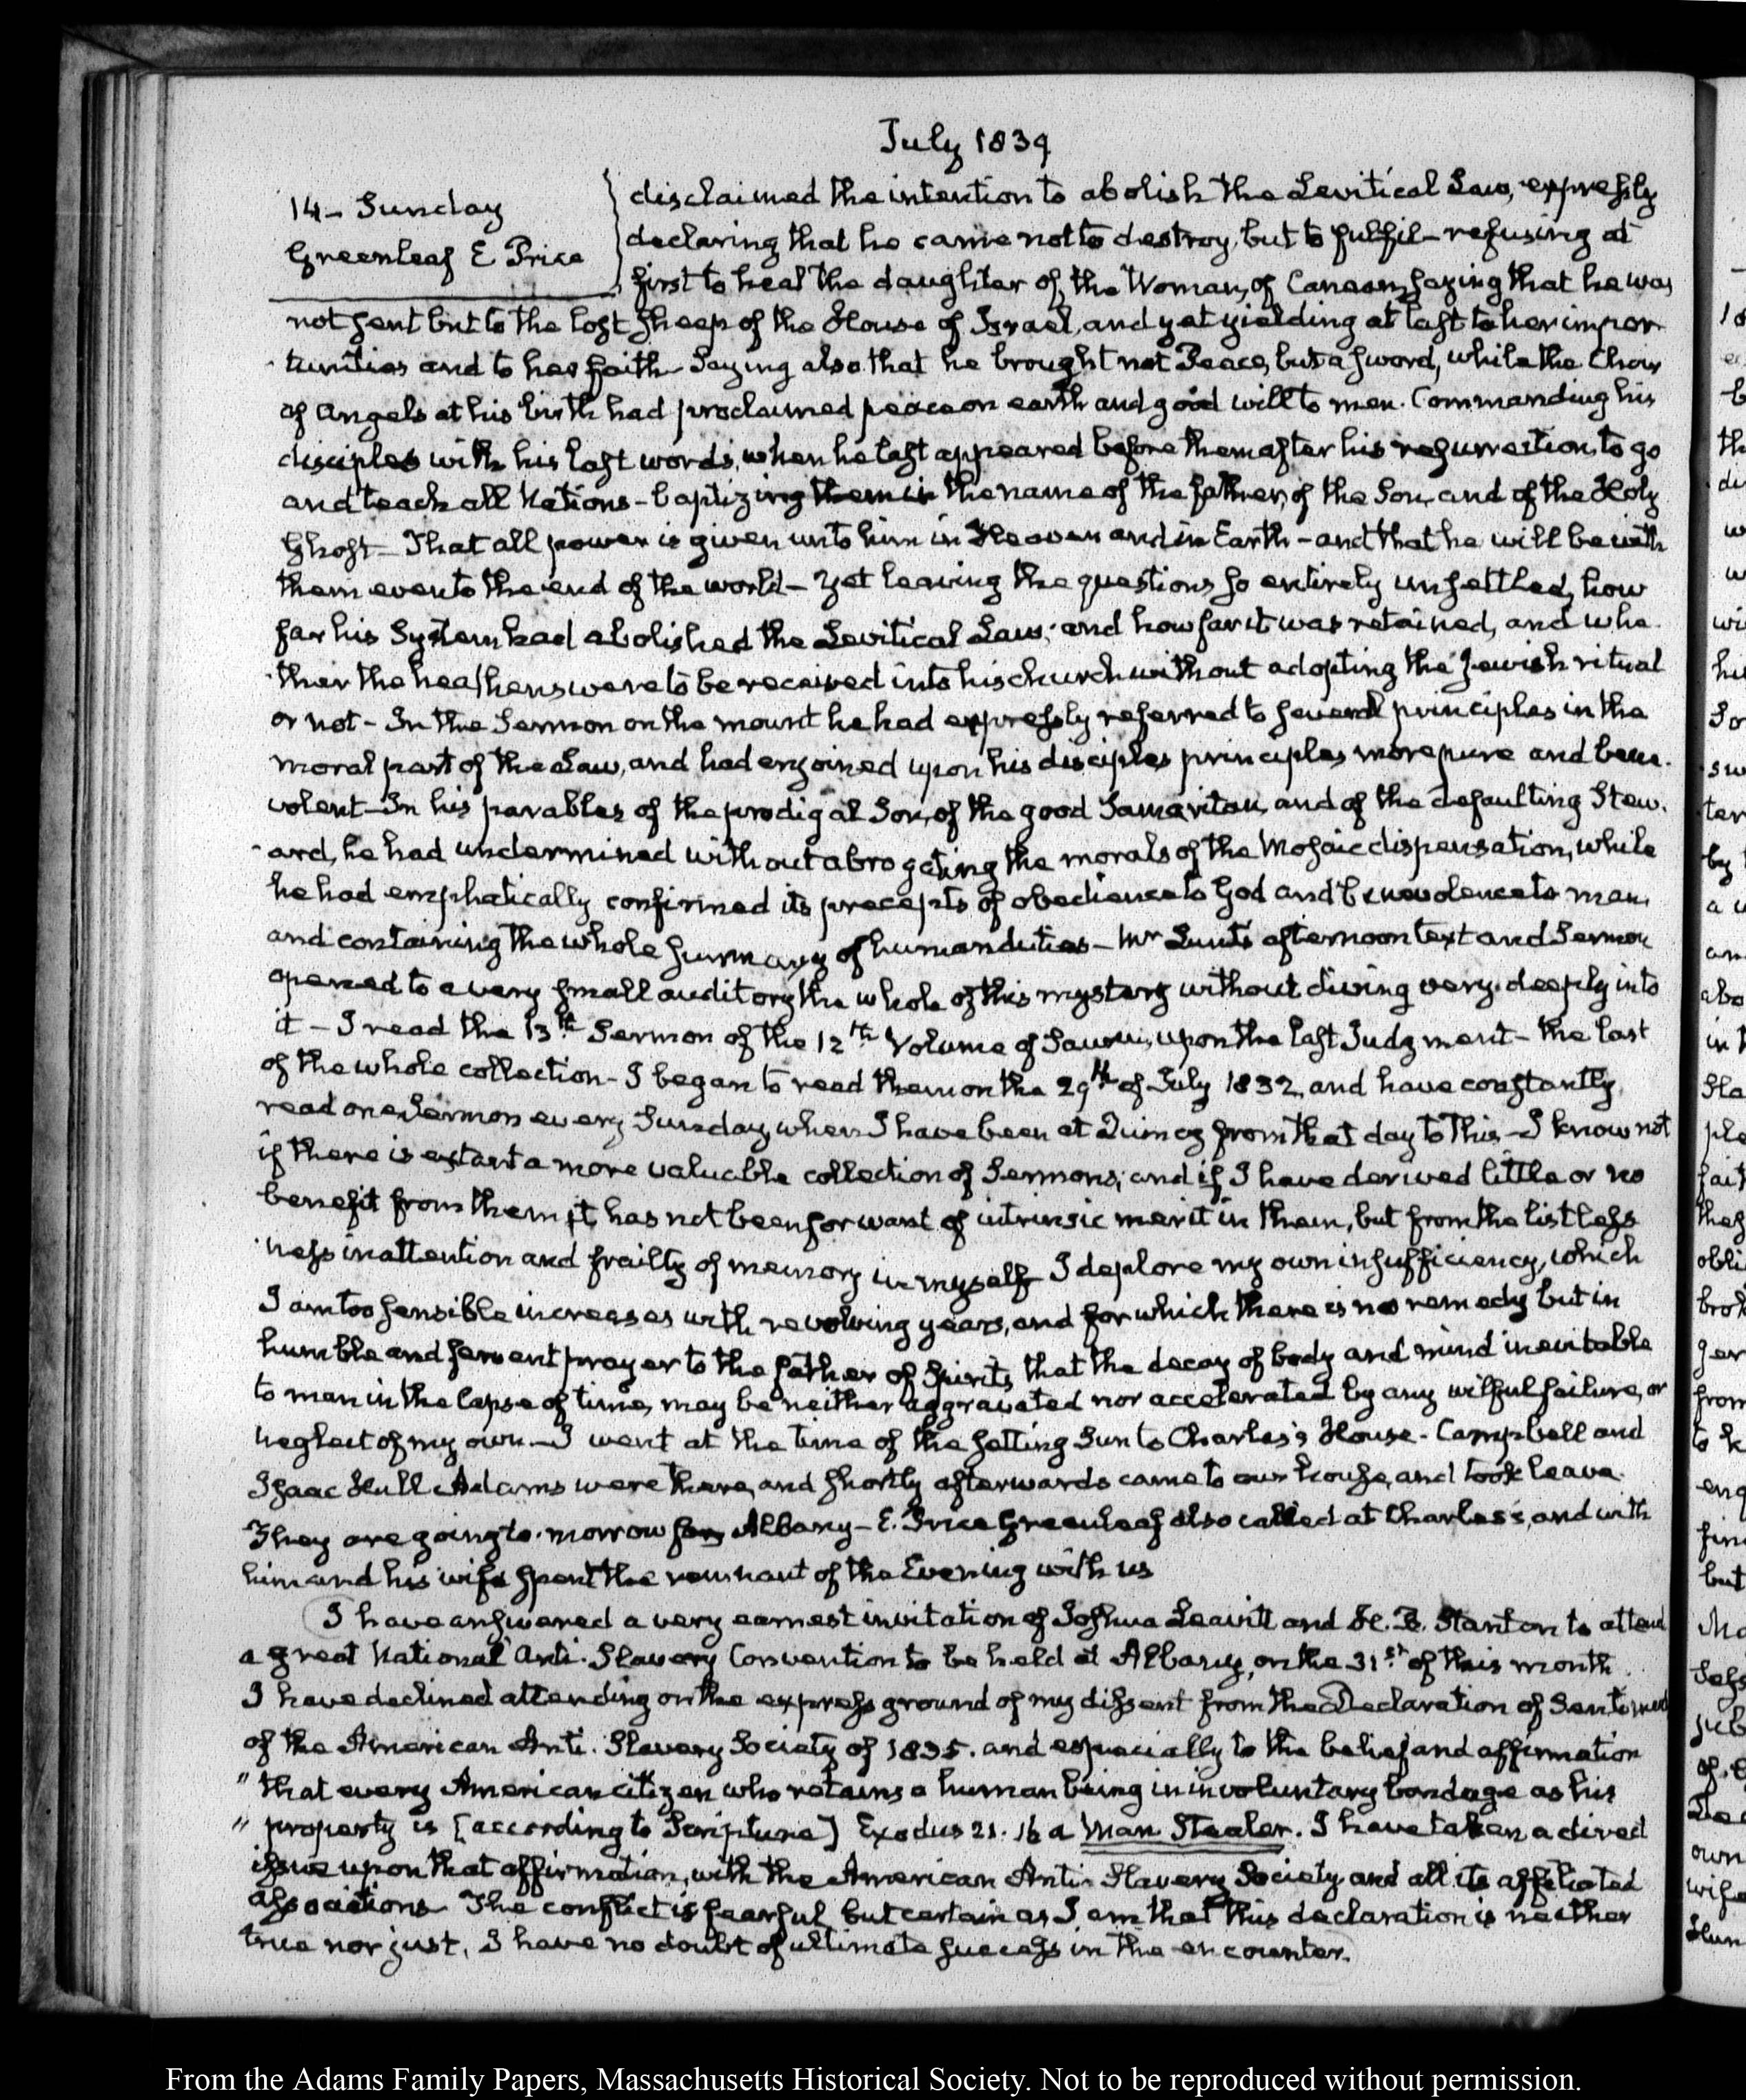 July 1839
14- Sunday
Greenleaf E Price
disclaimed the intention to abolish the Levitical Law, expressly
declaring that he came not to destroy, but to fulfil- refusing at
first to heal the daughter of the Woman, of Canaan, saying that he was
not sent but to the lost sheep of the House of Israel, and yet yielding at last to her impor-
tunities and to her faith- Saying also that he brought not Peace, but a sword, while the Choir
of Angels at his birth had proclaimed peace on earth and good will to men. Commanding his
disciples with his last words, when he last appeared before them after his resurrection, to go
and teach all Nations- baptizing them in the name of the father, of the Son, and of the Holy
Ghost- That all power is given unto him in Heaven and in Earth- and that he will be with
them even to the end of the world- Yet leaving the questions so entirely unsettled, how
far his System had abolished the Levitical Law; and how far it was retained, and whe-
ther the heathens were to be received into his church without adopting the Jewish ritual
or not- In the Sermon on the mount he had expressly referred to several principles in the
moral part of the Law, and had enjoined upon his disciples principles more pure and bene-
volent- In his parables of the prodigal Son, of the good Samaritan, and of the defaulting Stew-
ard, he had undermined without abrogating the morals of the Mosaic dispensation, while
he had emphatically confirmed its precepts of obedience to God and benevolence to man,
and containing the whole summary of human duties- Mr Lunt's afternoon text and Sermon
opened to a very small auditory the whole of this mystery without diving very deeply into
it- I read the 13th Sermon of the 12th Volume of Saurin, upon the last Judgment- the last
of the whole collection- I began to read them on the 29th of July 1832, and have constantly
read one Sermon every Sunday when I have been at Quincy from that day to This- I know not
if there is extant a more valuable collection of Sermons; and if I have derived little or no
benefit from them, it has not been for want of intrinsic merit in them, but from the listless
ness inattention and frailty of memory in myself I deplore my own insufficiency, which
I am too sensible increases with revolving years, and for which there is no remedy but in
humble and fervent prayer to the father of Spirits, that the decay of body and mind inevitable
to man in the lapse of time, may be neither aggravated nor accelerated by any wilful failure, or
neglect of my own- I went at the time of the setting Sun to Charles's House- Campbell and
Isaac Hull Adams were there, and shortly afterwards came to our house, and took leave.
They are going to-morrow for Albany- E. Price Greenleaf also called at Charles's, and with
him and his wife spent the remnant of the Evening with us
I have answered a very earnest invitation of Joshua Leavitt and H. B. Stanton to attend
a great National Anti-Slavery Convention to be held at Albany, on the 31st of this month.
I have declined attending on the express ground of my dissent from the Declaration of Sentiment
of the American Anti-Slavery Society of 1835. and especially to the belief and affirmation
" that every American citizen who retains a human being in involuntary bondage as his
" property is [according to Scripture] Exodus 21. 16 a Man Stealer. I have taken a direct
issue upon that affirmation, with the American Anti-Slavery Society and all its affiliated
associations- The conflict is fearful, but certain as I am that this declaration is neither
true nor just, I have no doubt of ultimate success in the encounter.
From the Adams Family Papers, Massachusetts Historical Society. Not to be reproduced without permission.